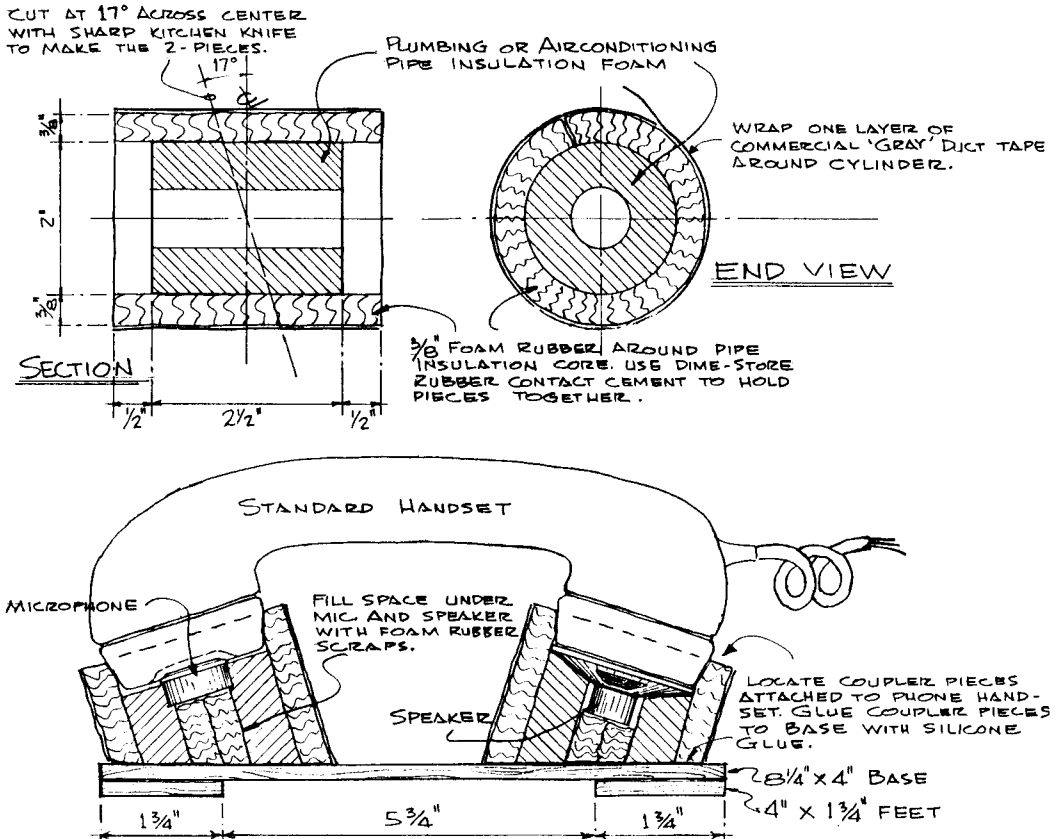 CUT AT 17° ACROSS CENTER
WITH SHARP KITCHEN KNIFE
TO MAKE THE 2-PIECES.
17°
℄
PLUMBING OR AIRCONDITIONING
PIPE INSULATION FOAM
WRAP ONE LAYER OF
COMMERCIAL 'GRAY' DUCT TAPE
AROUND CYLINDER.
3/8"
2"
3/8"
END VIEW
SECTION
3/8" FOAM RUBBER AROUND PIPE
INSULATION CORE. USE DIME-STORE
RUBBER CONTACT CEMENT TO HOLD
PIECES TOGETHER.
1/2"
2 1/2"
1/2"
STANDARD HANDSET
MICROPHONE
FILL SPACE UNDER
MIC. AND SPEAKER
WITH FOAM RUBBER
SCRAPS.
SPEAKER
LOCATE COUPLER PIECES
ATTACHED TO PHONE HAND-
SET. GLUE COUPLER PIECES
TO BASE WITH SILICONE
GLUE.
8 1/4" X 4" BASE
4" X 1 3/4" FEET
1 3/4"
5 3/4"
1 3/4"